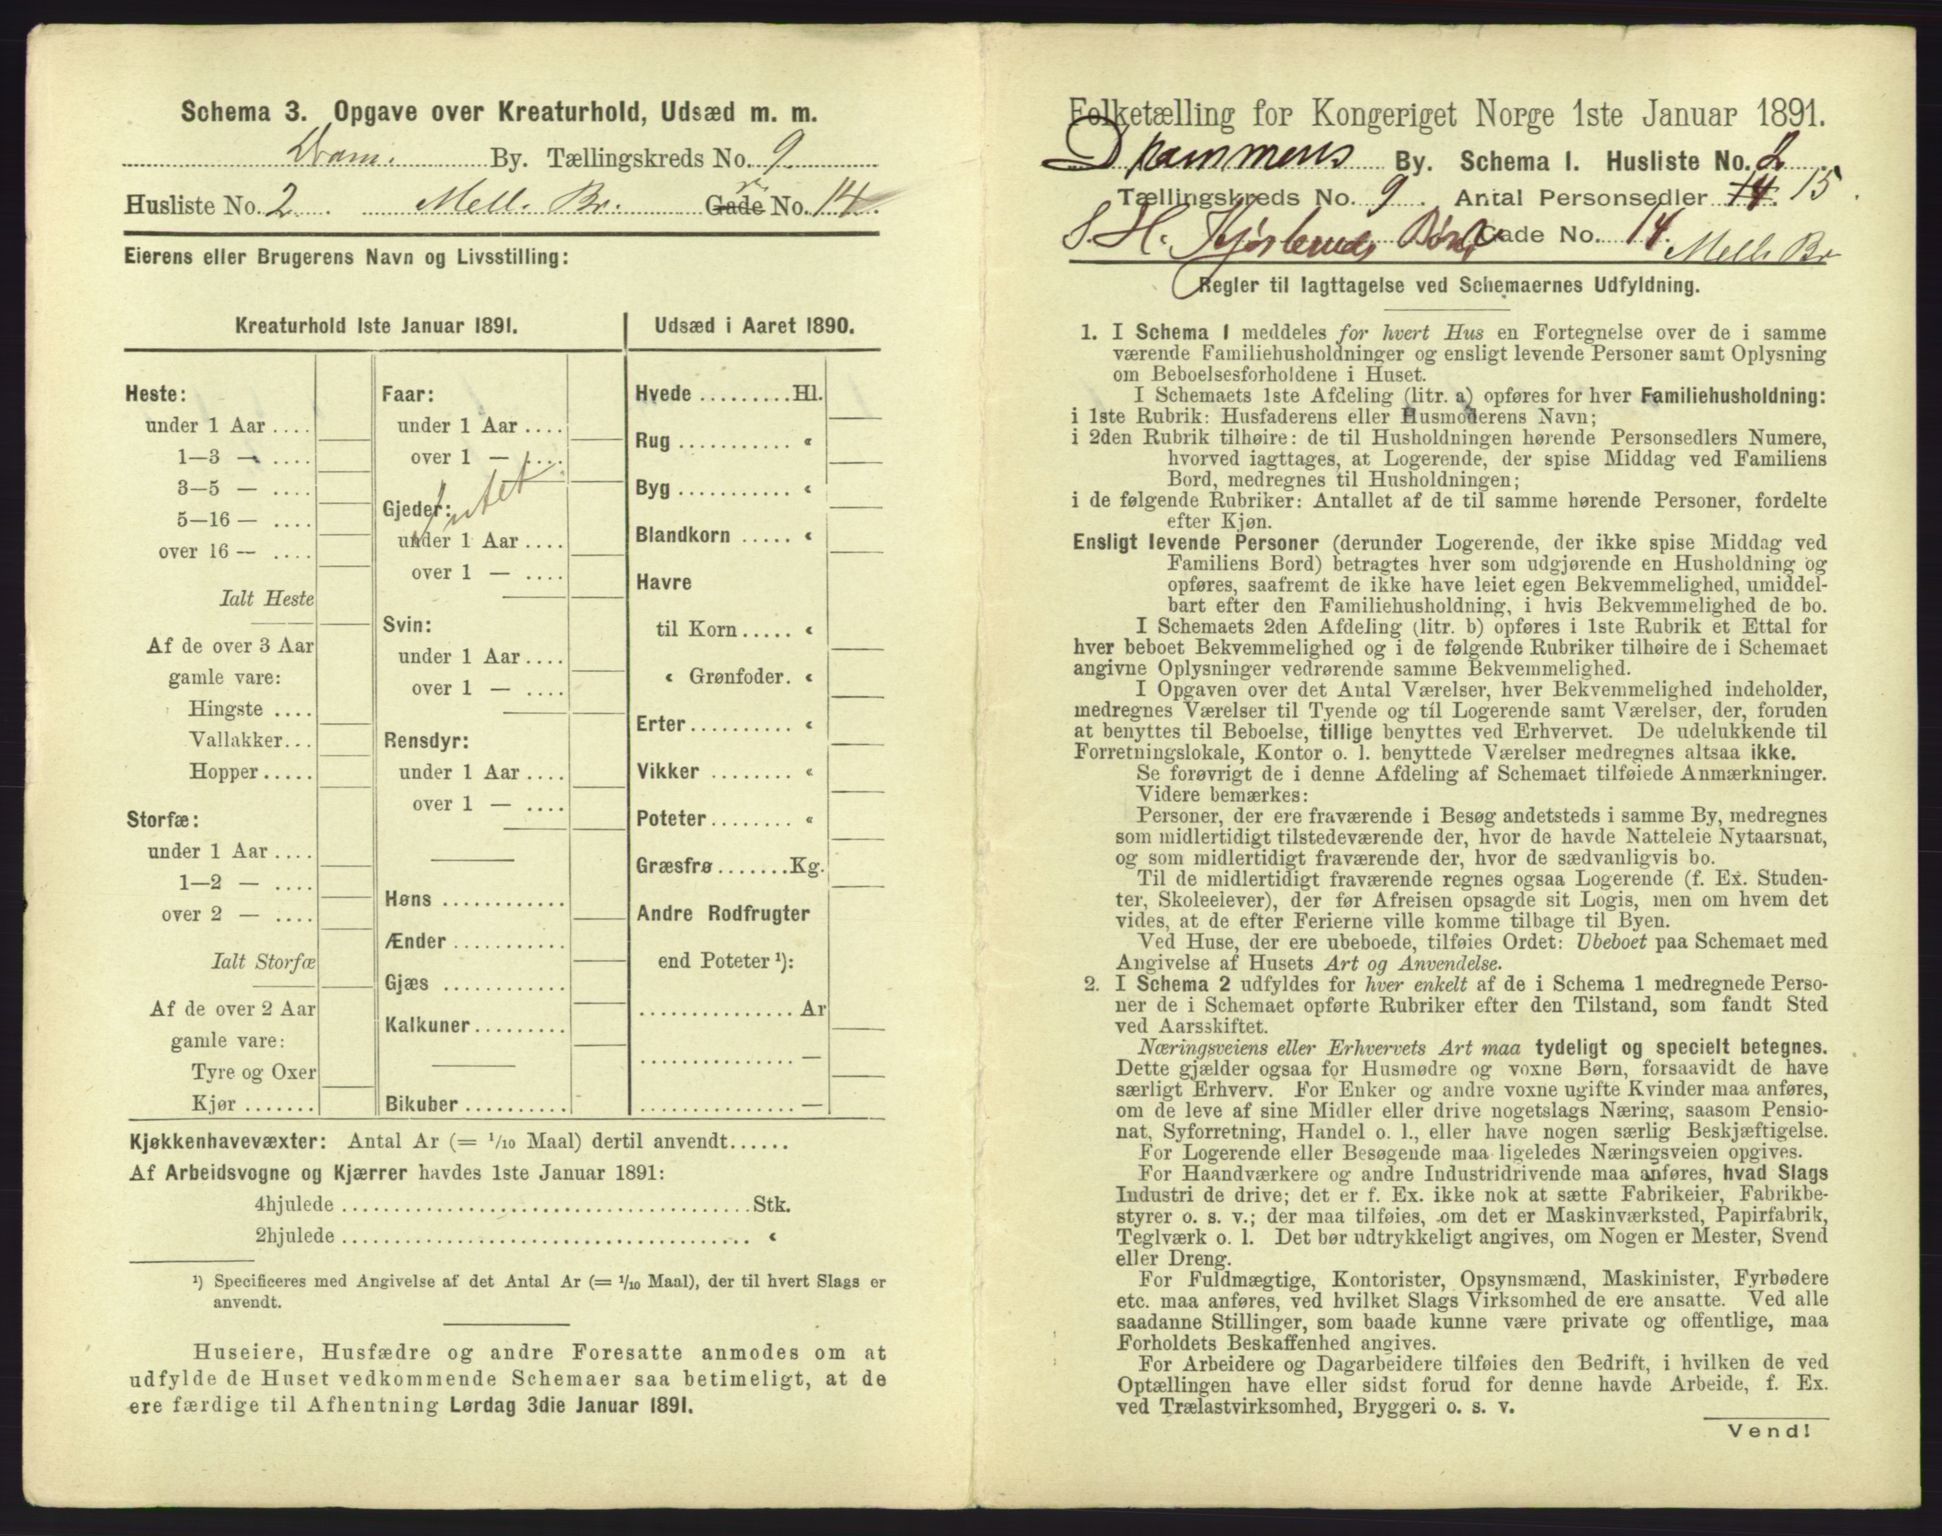 Schema 3. Opgave over Kreaturhold, Udsæd m. m.
Dram. By. Tællingskreds No. 9
Husliste No. 2. Mell. Br. Gade No. 14.
Eierens eller Brugerens Navn og Livsstilling:
Kreaturhold 1ste Januar 1891.
Heste:
under 1 Aar ....
1—3 — ....
3—5 — ....
5—16 — ....
over 16 — ....
Ialt Heste
Af de over 3 Aar
gamle vare:
Hingste ....
Vallakker...
Hopper.....
Storfæ:
under 1 Aar ....
1—2 — ....
over 2 — ....
Ialt Storfæ
Af de over 2 Aar
gamle vare:
Tyre og Oxer
Kjør .......
Faar:
under 1 Aar ....
over 1 — ....
Intet
Gjeder:
under 1 Aar ....
over 1 — ....
Svin:
under 1 Aar ....
over 1 — ....
Rensdyr:
under 1 Aar ....
over 1 — ....
Høns ............
Ænder ...........
Gjæs ............
Kalkuner.........
Bikuber ..........
Udsæd i Aaret 1890.
Hvede .........Hl.
Rug ........... «
Byg ........... «
Blandkorn ..... «
Havre
til Korn ..... «
« Grønfoder. «
Erter.......... «
Vikker ........ «
Poteter........ «
Græsfrø.......Kg.
Andre Rodfrugter
end Poteter ¹):
...............Ar
............... —
............... —
Kjøkkenhavevæxter: Antal Ar (= 1/10 Maal) dertil anvendt......
Af Arbeidsvogne og Kjærrer havdes 1ste Januar 1891:
4hjulede ........................................Stk.
2hjulede ........................................ «
¹) Specificeres med Angivelse af det Antal Ar (= 1/10 Maal), der til hvert Slags er
anvendt.
Huseiere, Husfædre og andre Foresatte anmodes om at
udfylde de Huset vedkommende Schemaer saa betimeligt, at de
ere færdige til Afhentning Lørdag 3die Januar 1891.
Folketælling for Kongeriget Norge 1ste Januar 1891.
Drammens By. Schema I. Husliste No. 2
Tællingskreds No. 9. Antal Personsedler 14. 15.
S. H. Gade No. 14. Mell. Br
Regler til Iagttagelse ved Schemaernes Udfyldning.
1. I Schema 1 meddeles for hvert Hus en Fortegnelse over de i samme
værende Familiehusholdninger og ensligt levende Personer samt Oplysning
om Beboelsesforholdene i Huset.
I Schemaets 1ste Afdeling (litr. a) opføres for hver Familiehusholdning:
i 1ste Rubrik: Husfaderens eller Husmoderens Navn;
i 2den Rubrik tilhøire: de til Husholdningen hørende Personsedlers Numere,
hvorved iagttages, at Logerende, der spise Middag ved Familiens
Bord, medregnes til Husholdningen;
i de følgende Rubriker: Antallet af de til samme hørende Personer, fordelte
efter Kjøn.
Ensligt levende Personer (derunder Logerende, der ikke spise Middag ved
Familiens Bord) betragtes hver som udgjørende en Husholdning og
opføres, saafremt de ikke have leiet egen Bekvemmelighed, umiddel-
bart efter den Familiehusholdning, i hvis Bekvemmelighed de bo.
I Schemaets 2den Afdeling (litr. b) opføres i 1ste Rubrik et Ettal for
hver beboet Bekvemmelighed og i de følgende Rubriker tilhøire de i Schemaet
angivne Oplysninger vedrørende samme Bekvemmelighed.
I Opgaven over det Antal Værelser, hver Bekvemmelighed indeholder,
medregnes Værelser til Tyende og til Logerende samt Værelser, der, foruden
at benyttes til Beboelse, tillige benyttes ved Erhvervet. De udelukkende til
Forretningslokale, Kontor o. l. benyttede Værelser medregnes altsaa ikke.
Se forøvrigt de i denne Afdeling af Schemaet tilføiede Anmærkninger.
Videre bemærkes:
Personer, der ere fraværende i Besøg andetsteds i samme By, medregnes
som midlertidigt tilstedeværende der, hvor de havde Natteleie Nytaarsnat,
og som midlertidigt fraværende der, hvor de sædvanligvis bo.
Til de midlertidigt fraværende regnes ogsaa Logerende (f. Ex. Studen-
ter, Skoleelever), der før Afreisen opsagde sit Logis, men om hvem det
vides, at de efter Ferierne ville komme tilbage til Byen.
Ved Huse, der ere ubeboede, tilføies Ordet: Ubeboet paa Schemaet med
Angivelse af Husets Art og Anvendelse.
2. I Schema 2 udfyldes for hver enkelt af de i Schema 1 medregnede Perso-
ner de i Schemaet opførte Rubriker efter den Tilstand, som fandt Sted
ved Aarsskiftet.
Næringsveiens eller Erhvervets Art maa tydeligt og specielt betegnes.
Dette gjælder ogsaa for Husmødre og voxne Børn, forsaavidt de have
særligt Erhverv. For Enker og andre voxne ugifte Kvinder maa anføres,
om de leve af sine Midler eller drive nogetslags Næring, saasom Pensio-
nat, Syforretning, Handel o. l., eller have nogen særlig Beskjæftigelse.
For Logerende eller Besøgende maa ligeledes Næringsveien opgives.
For Haandværkere og andre Industridrivende maa anføres, hvad Slags
Industri de drive; det er f. Ex. ikke nok at sætte Fabrikeier, Fabrikbe-
styrer o. s. v.; der maa tilføies, om det er Maskinværksted, Papirfabrik,
Teglværk o. l. Det bør udtrykkeligt angives, om Nogen er Mester, Svend
eller Dreng.
For Fuldmægtige, Kontorister, Opsynsmænd, Maskinister, Fyrbødere
etc. maa anføres, ved hvilket Slags Virksomhed de ere ansatte. Ved alle
saadanne Stillinger, som baade kunne være private og offentlige, maa
Forholdets Beskaffenhed angives.
For Arbeidere og Dagarbeidere tilføies den Bedrift, i hvilken de ved
Optællingen have eller sidst forud for denne havde Arbeide, f. Ex.
ved Trælastvirksomhed, Bryggeri o. s. v.
Vend!